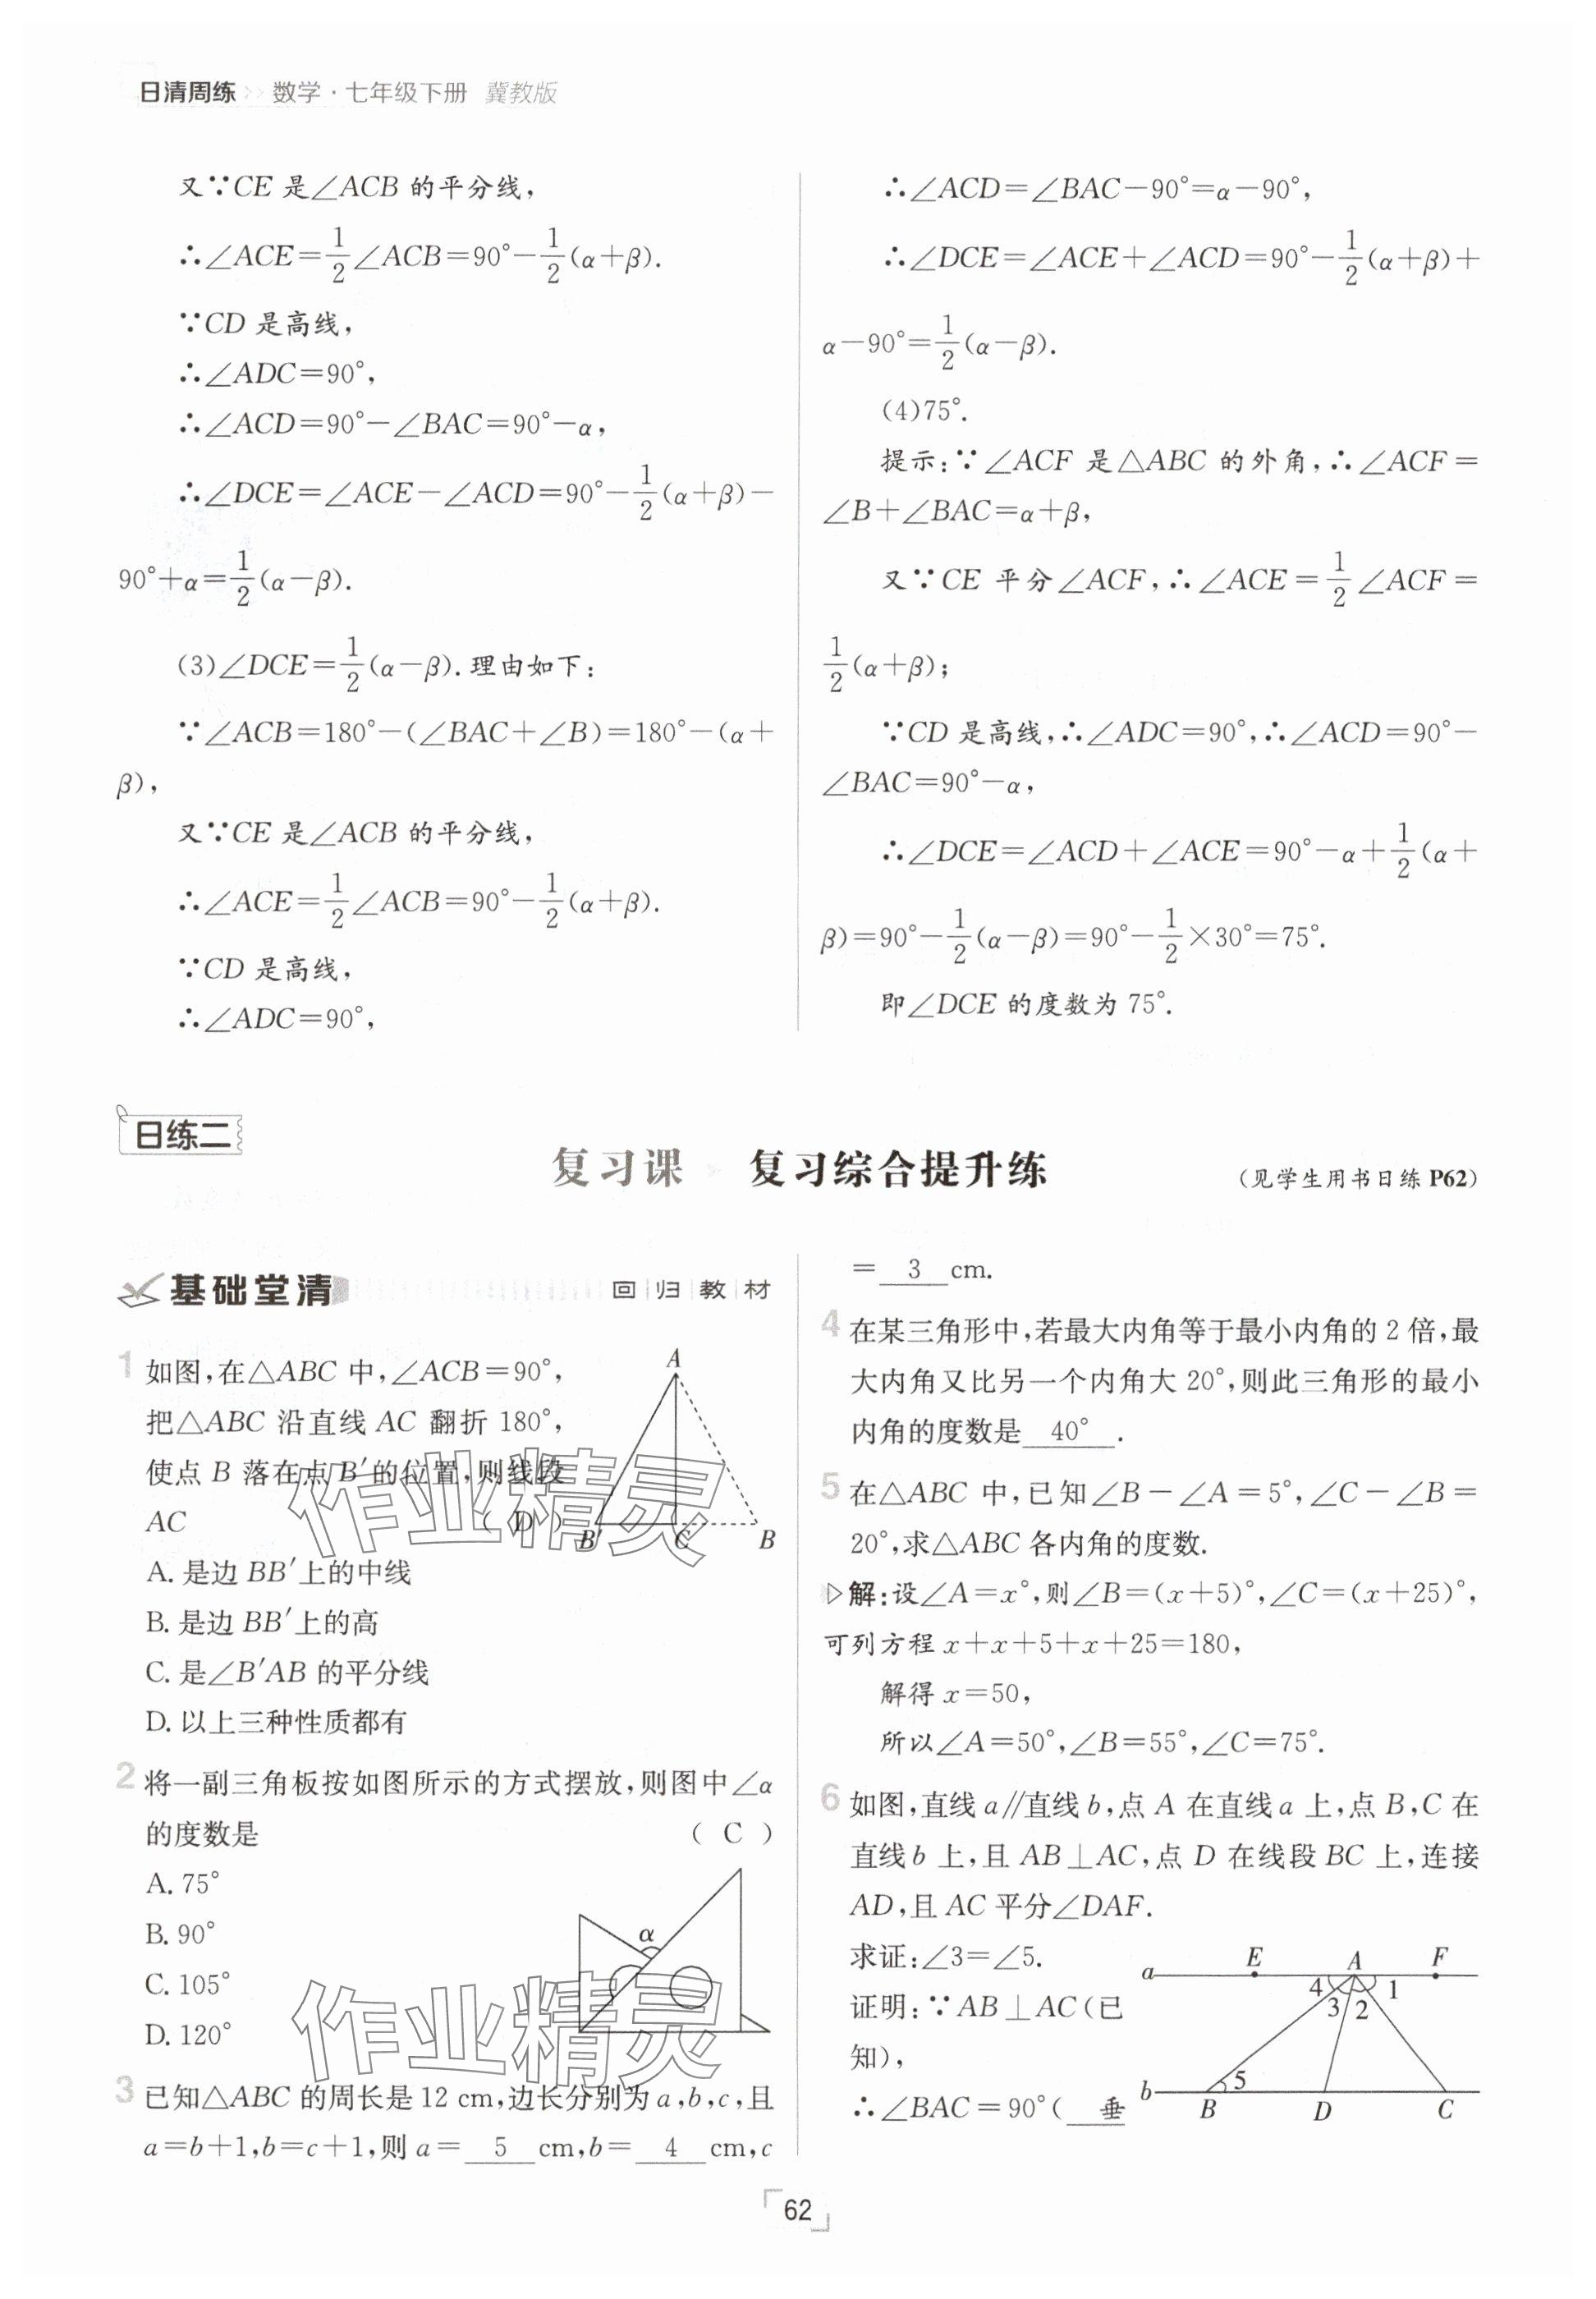 日清周练 >> 数学·七年级下册 冀教版
又∵CE 是∠ACB 的平分线，
∴∠ACE=1/2∠ACB=90°-1/2(α+β).
∵CD 是高线，
∴∠ADC=90°，
∴∠ACD=90°-∠BAC=90°-α，
∴∠DCE=∠ACE-∠ACD=90°-1/2(α+β)-
90°+α=1/2(α-β).
(3)∠DCE=1/2(α-β).理由如下：
∵∠ACB=180°-(∠BAC+∠B)=180°-(α+
β)，
又∵CE 是∠ACB 的平分线，
∴∠ACE=1/2∠ACB=90°-1/2(α+β).
∵CD 是高线，
∴∠ADC=90°，
∴∠ACD=∠BAC-90°=α-90°，
∴∠DCE=∠ACE+∠ACD=90°-1/2(α+β)+
α-90°=1/2(α-β).
(4)75°.
提示：∵∠ACF 是△ABC 的外角，∴∠ACF=
∠B+∠BAC=α+β，
又∵CE 平分∠ACF，∴∠ACE=1/2∠ACF=
1/2(α+β)；
∵CD 是高线，∴∠ADC=90°，∴∠ACD=90°-
∠BAC=90°-α，
∴∠DCE=∠ACD+∠ACE=90°-α+1/2(α+
β)=90°-1/2(α-β)=90°-1/2×30°=75°.
即∠DCE 的度数为 75°.
日练二
复习课 复习综合提升练
(见学生用书日练 P62)
基础堂清
回归教材
1 如图，在△ABC 中，∠ACB=90°，
把△ABC 沿直线 AC 翻折 180°，
使点 B 落在点 B′的位置，则线段
AC ( D )
A
B′ C B
A. 是边 BB′上的中线
B. 是边 BB′上的高
C. 是∠B′AB 的平分线
D. 以上三种性质都有
2 将一副三角板按如图所示的方式摆放，则图中∠α
的度数是 ( C )
A. 75°
B. 90°
C. 105°
D. 120°
α
3 已知△ABC 的周长是 12 cm，边长分别为 a，b，c，且
a=b+1，b=c+1，则 a= 5 cm，b= 4 cm，c
= 3 cm.
4 在某三角形中，若最大内角等于最小内角的 2 倍，最
大内角又比另一个内角大 20°，则此三角形的最小
内角的度数是 40° .
5 在△ABC 中，已知∠B-∠A=5°，∠C-∠B=
20°，求△ABC 各内角的度数.
▷解：设∠A=x°，则∠B=(x+5)°，∠C=(x+25)°，
可列方程 x+x+5+x+25=180，
解得 x=50，
所以∠A=50°，∠B=55°，∠C=75°.
6 如图，直线 a∥直线 b，点 A 在直线 a 上，点 B，C 在
直线 b 上，且 AB⊥AC，点 D 在线段 BC 上，连接
AD，且 AC 平分∠DAF.
求证：∠3=∠5.
证明：∵AB⊥AC(已
知)，
∴∠BAC=90°( 垂
a E A F
4 3 2 1
b 5
B D C
作业精灵
作业精灵
62